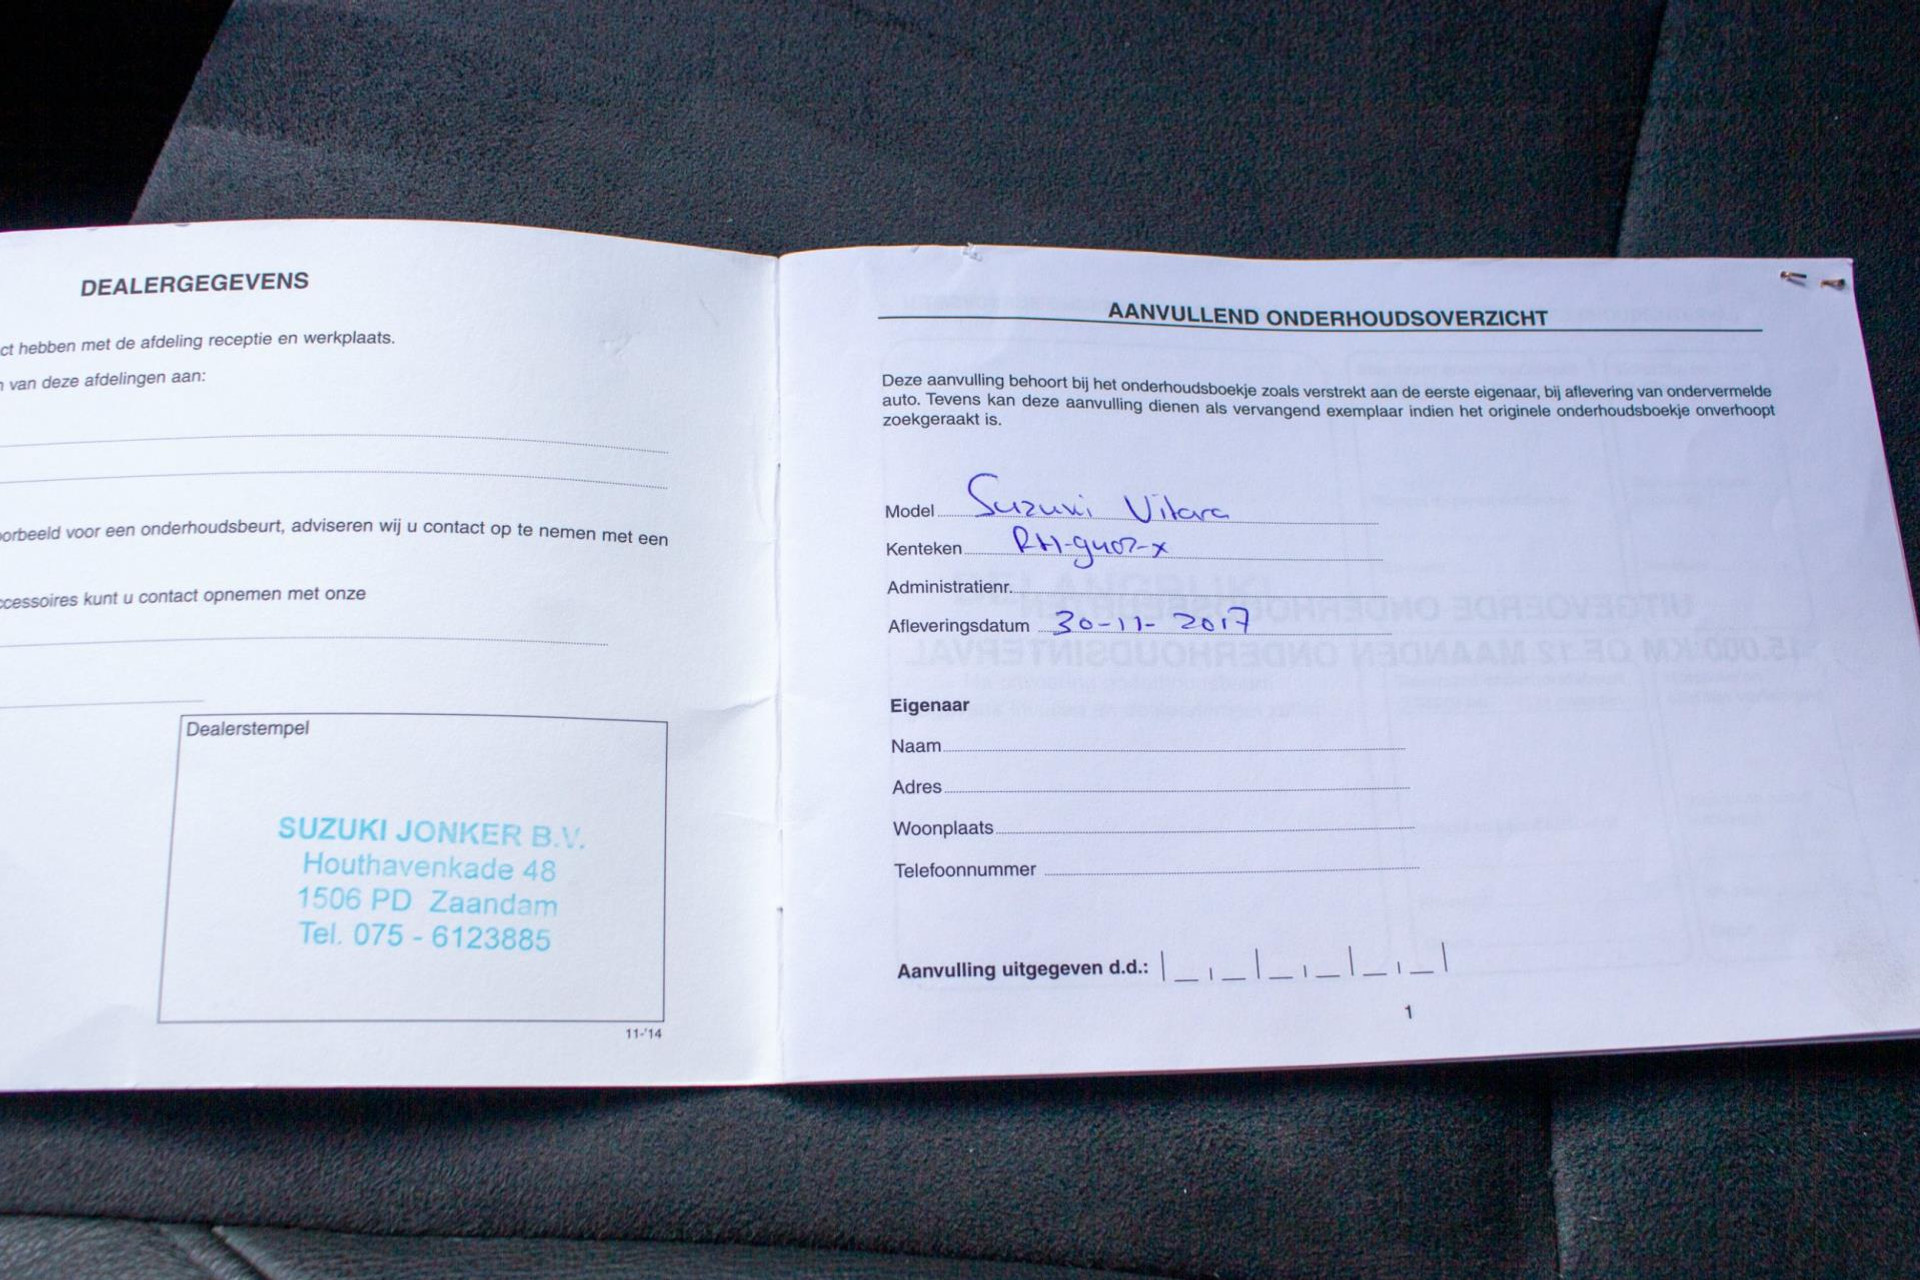 DEALERGEGEVENS
ct hebben met de afdeling receptie en werkplaats.
van deze afdelingen aan:
orbeeld voor een onderhoudsbeurt, adviseren wij u contact op te nemen met een
ccessoires kunt u contact opnemen met onze
Dealerstempel
SUZUKI JONKER B.V.
Houthavenkade 48
1506 PD Zaandam
Tel. 075 - 6123885
11-'14
AANVULLEND ONDERHOUDSOVERZICHT
Deze aanvulling behoort bij het onderhoudsboekje zoals verstrekt aan de eerste eigenaar, bij aflevering van ondervermelde
auto. Tevens kan deze aanvulling dienen als vervangend exemplaar indien het originele onderhoudsboekje onverhoopt
zoekgeraakt is.
Model Suzuki Vitara
Kenteken
Administratienr.
Afleveringsdatum 30-11-2017
Eigenaar
Naam
Adres
Woonplaats
Telefoonnummer
Aanvulling uitgegeven d.d.:
1